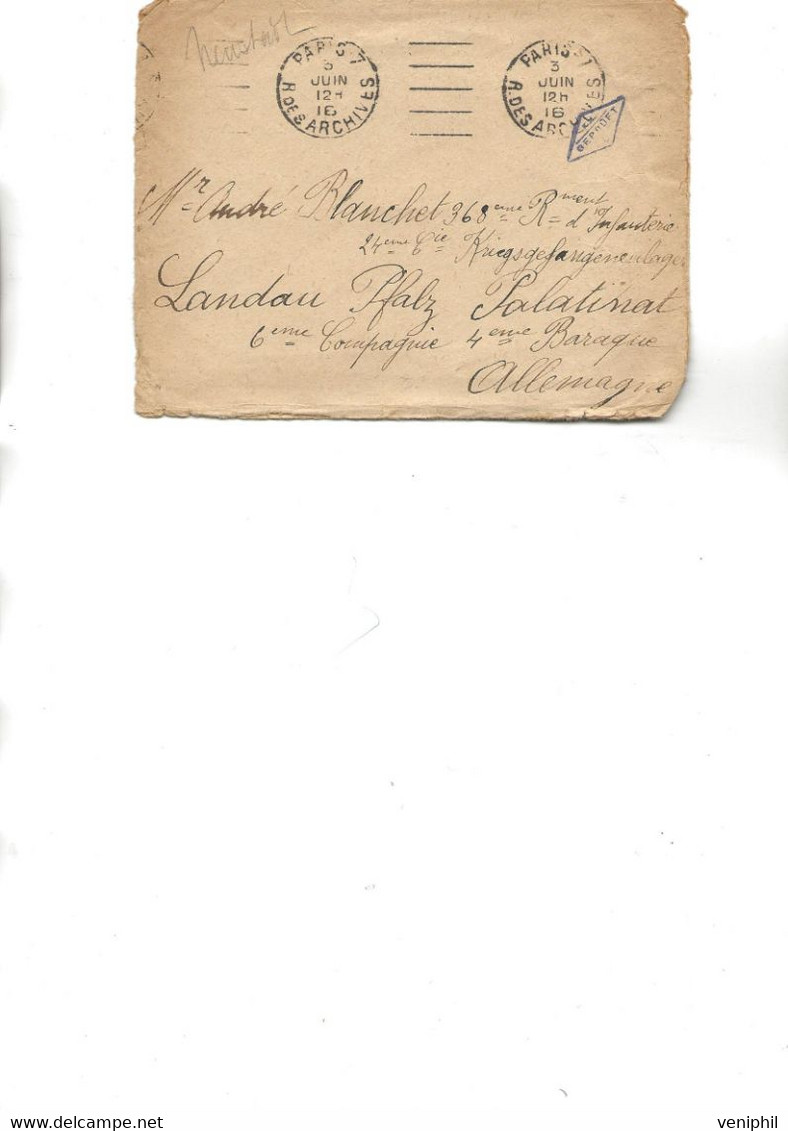 Neustadt
PARIS 7
3
JUIN
12H
16
R. DES ARCHIVES
PARIS 7
3
JUIN
12H
16
R. DES ARCHIVES
GEPRÜFT
Mr André Blanchet 368eme Rment d'Infanterie
24eme Cie Kriegsgefangenenlager
Landau Pfalz Palatinat
6eme Compagnie 4eme Baraque
Allemagne
delcampe.net
veniphil